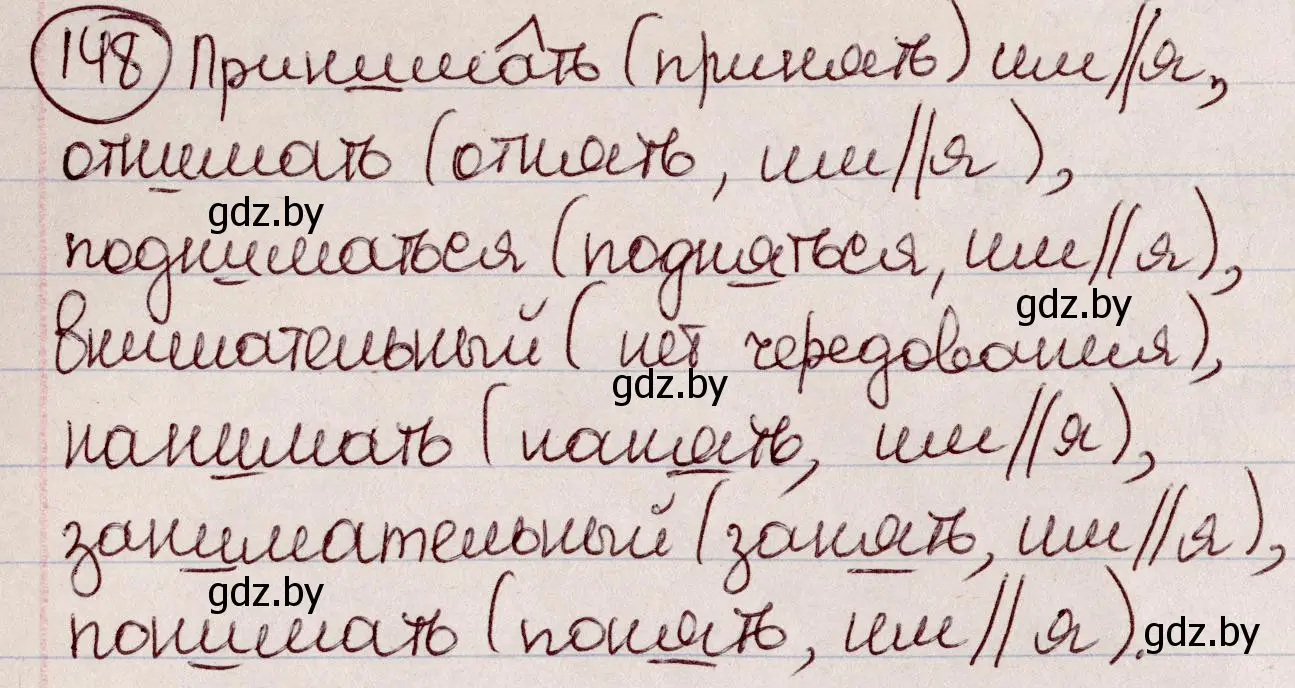 148 Принимать (принять) им//я,
отнимать (отнять, им//я),
gdz.by
подниматься (подняться, им//я),
gdz.by
внимательный (нет чередования),
gdz.by
нанимать (нанять, им//я),
занимательный (занять, им//я),
gdz.by
понимать (понять, им//я).
gdz.by